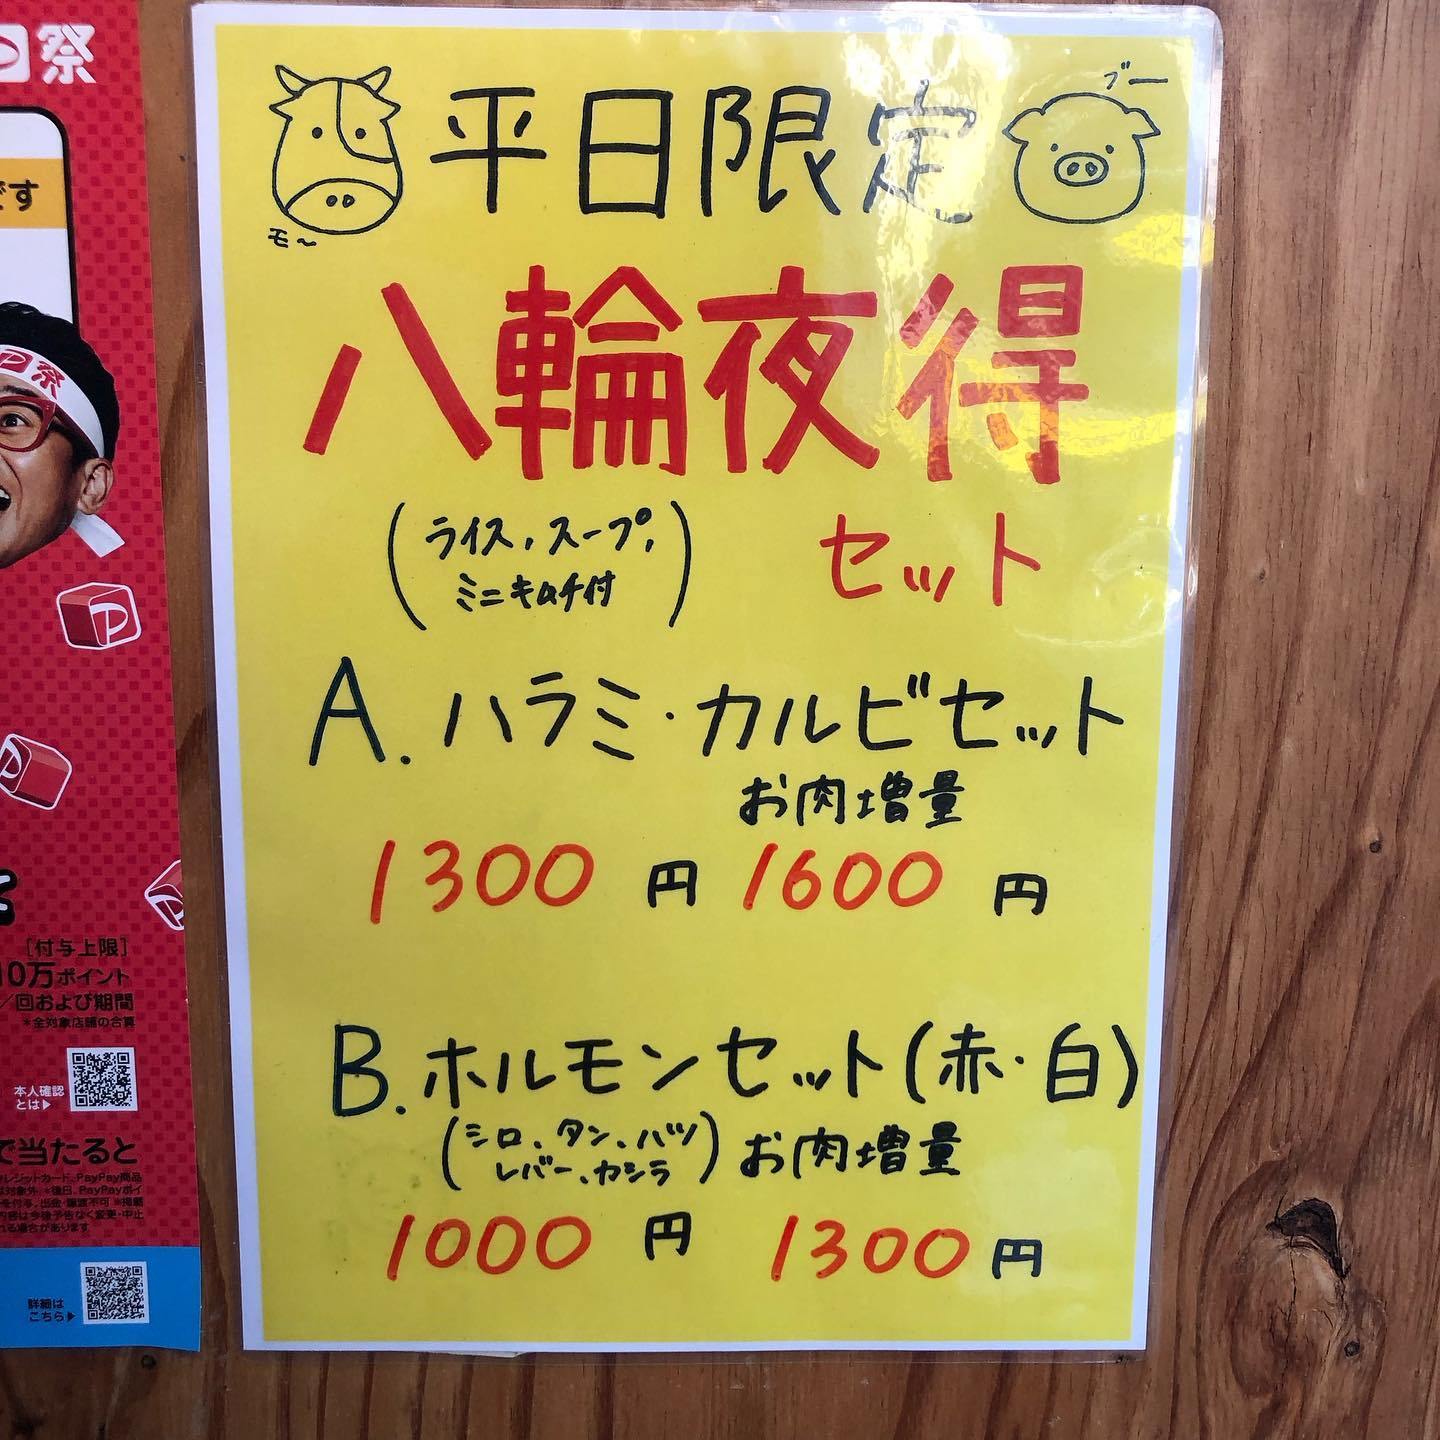 祭
です
P祭
[付与上限]
10万ポイント
/回および期間
*全対象店舗の合算
本人確認
とは▶
で当たると
詳細は
こちら▶
平日限定
ブー
モ〜
八輪夜得
(ライス、スープ、
ミニキムチ付)
セット
A.ハラミ・カルビセット
お肉増量
1300円 1600円
B.ホルモンセット(赤・白)
(シロ、タン、ハツ
レバー、カシラ)
お肉増量
1000円 1300円